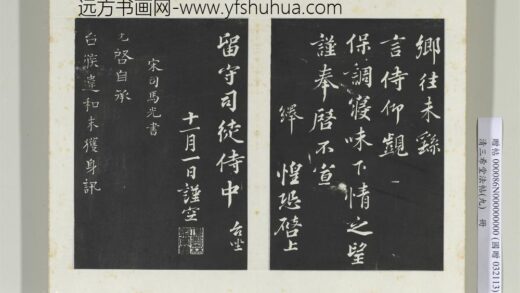 远方书画网-www.yfshuhua.com
鄉往未繇
言侍仰觀
保調寢味下情之望
謹奉啓不宣
絳 惶恐啓上
留守司徒侍中 台坐
十一月一日謹空
宋司馬光書
光啓自承
台候違和未獲身訊
贈帖 000086N000000000 (國贈 032113)
清三希堂法帖(九) 冊